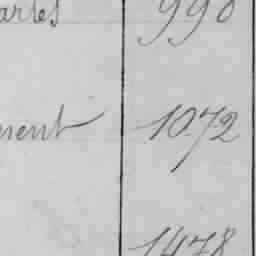 arles 990
ment 1072
1478